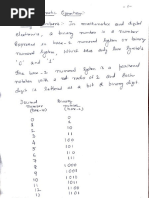 Binary Numbers:- In mathematics and digital
electronics, a binary number is a number
expressed in base-2 numeral system or binary
numeral system, which uses only two symbols
'0' and '1'
The base-2 numeral system is a positional
notation with a radix of 2. and each
digit is referred as a bit or binary
digit
Decimal Binary
number number
0 0
1 1
2 10
3 11
4 100
5 101
6 110
7 111
8 1000
9 1001
10 1010
11 1011
12 1100
13 1101